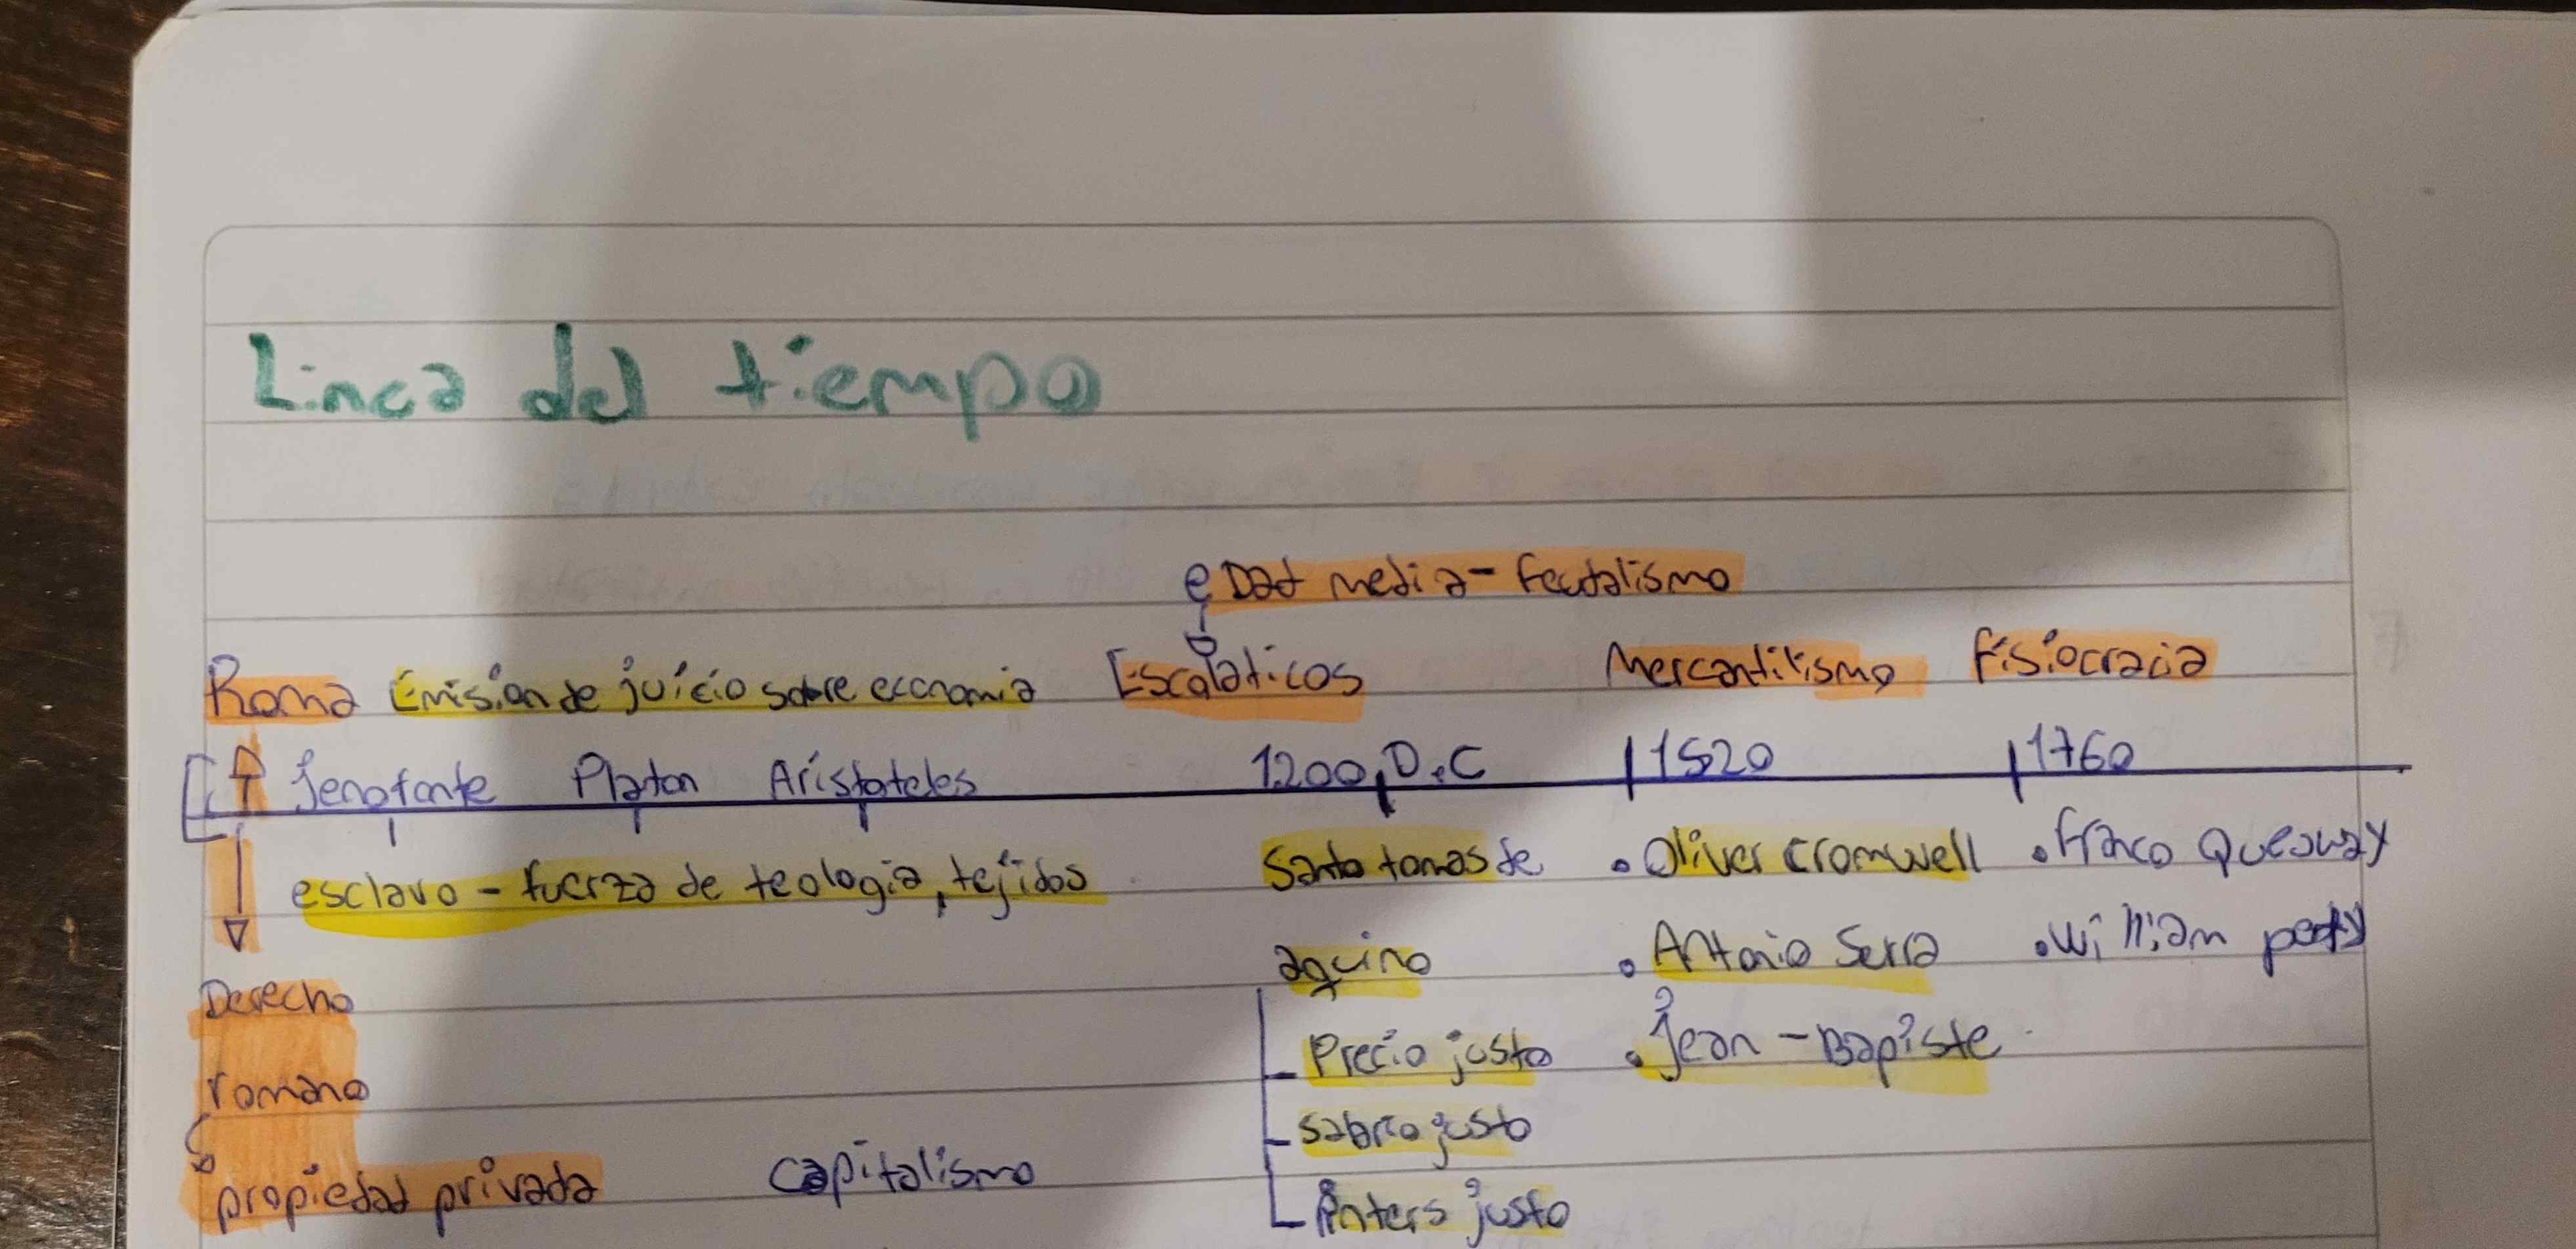 Linea del tiempo
eDad media - feudalismo
Roma Emision de juicio sobre economia Escolaticos Mercantilismo fisiocracia
Jenofonte Platon Aristoteles 1200 D.C 1520 1760
esclavo - fuerza de teologia, tejidos Santo tomas de • Oliver cromwell • franco Quesnay
aquino • Antonio Serra • William petty
Derecho
Precio justo • Jean - Bapiste
romano
salario justo
propiedad privada capitalismo
inters justo